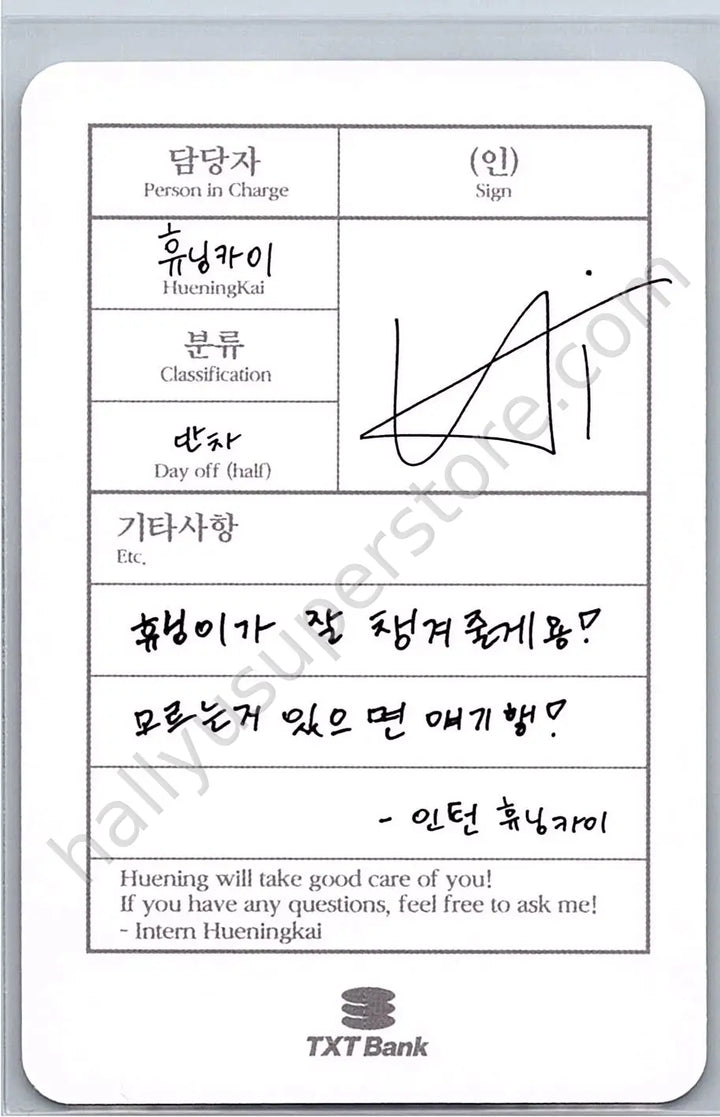 담당자
Person in Charge
(인)
Sign
휴닝카이
HueningKai
Kai
분류
Classification
반차
Day off (half)
기타사항
Etc.
휴닝이가 잘 챙겨줄게용!
모르는거 있으면 얘기행!
- 인턴 휴닝카이
Huening will take good care of you!
If you have any questions, feel free to ask me!
- Intern Hueningkai
TXT Bank
hallyusuperstore.com